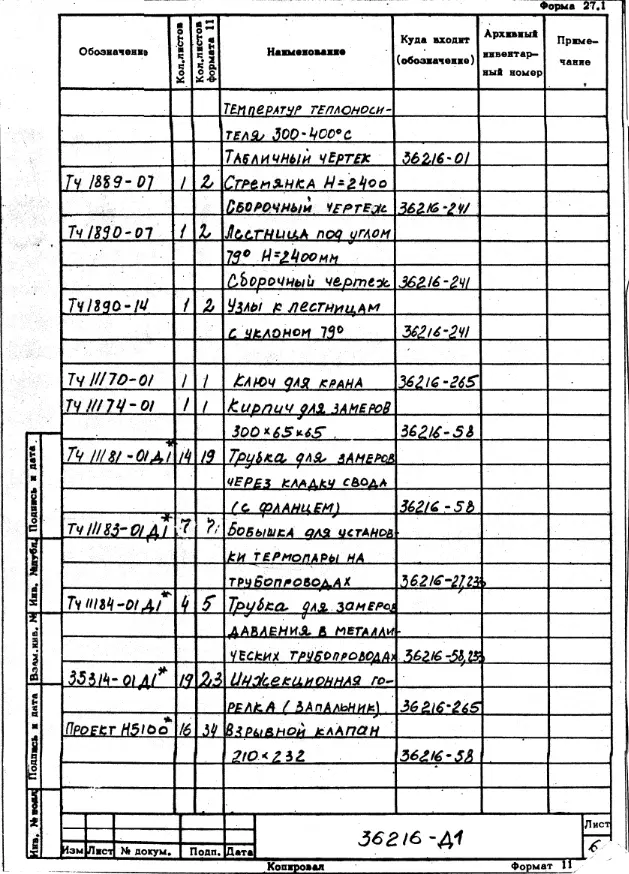 Форма 27.1
Обозначение Кол.листов Кол.листов формата 11 Наименование Куда входит (обозначение) Архивный инвентарный номер Примечание
температур теплоноси-
теля 300-400°С
Табличный чертеж 36216-01
ТЧ 1889-07 1 2 Стремянка Н=2400
Сборочный чертеж 36216-241
ТЧ 1890-07 1 2 Лестница под углом
79° Н=2400мм
Сборочный чертеж 36216-241
ТЧ 1890-14 1 2 Узлы к лестницам
с уклоном 79° 36216-241
ТЧ 11170-01 1 1 Ключ для крана 36216-265
ТЧ 11174-01 1 1 Кирпич для замеров
300×65×65 36216-58
ТЧ 11181-01Д1* 14 19 Трубка для замеров
через кладку свода
(с фланцем) 36216-58
ТЧ 11183-01Д1* 7 7 Бобышка для установ-
ки термопары на
трубопроводах 36216-27,235
ТЧ 11184-01Д1* 4 5 Трубка для замеров
давления в металли-
ческих трубопроводах 36216-58,235
35314-01Д1* 19 23 Инжекционная го-
релка (запальник) 36216-265
Проект Н5100* 16 34 Взрывной клапан
210×232 36216-58
Подпись и дата
Инв. №дубл.
Взам.инв. №
Подпись и дата
Инв. № подл
Изм Лист № докум. Подп. Дата
36216-Д1
Лист
6
Копировал Формат 11